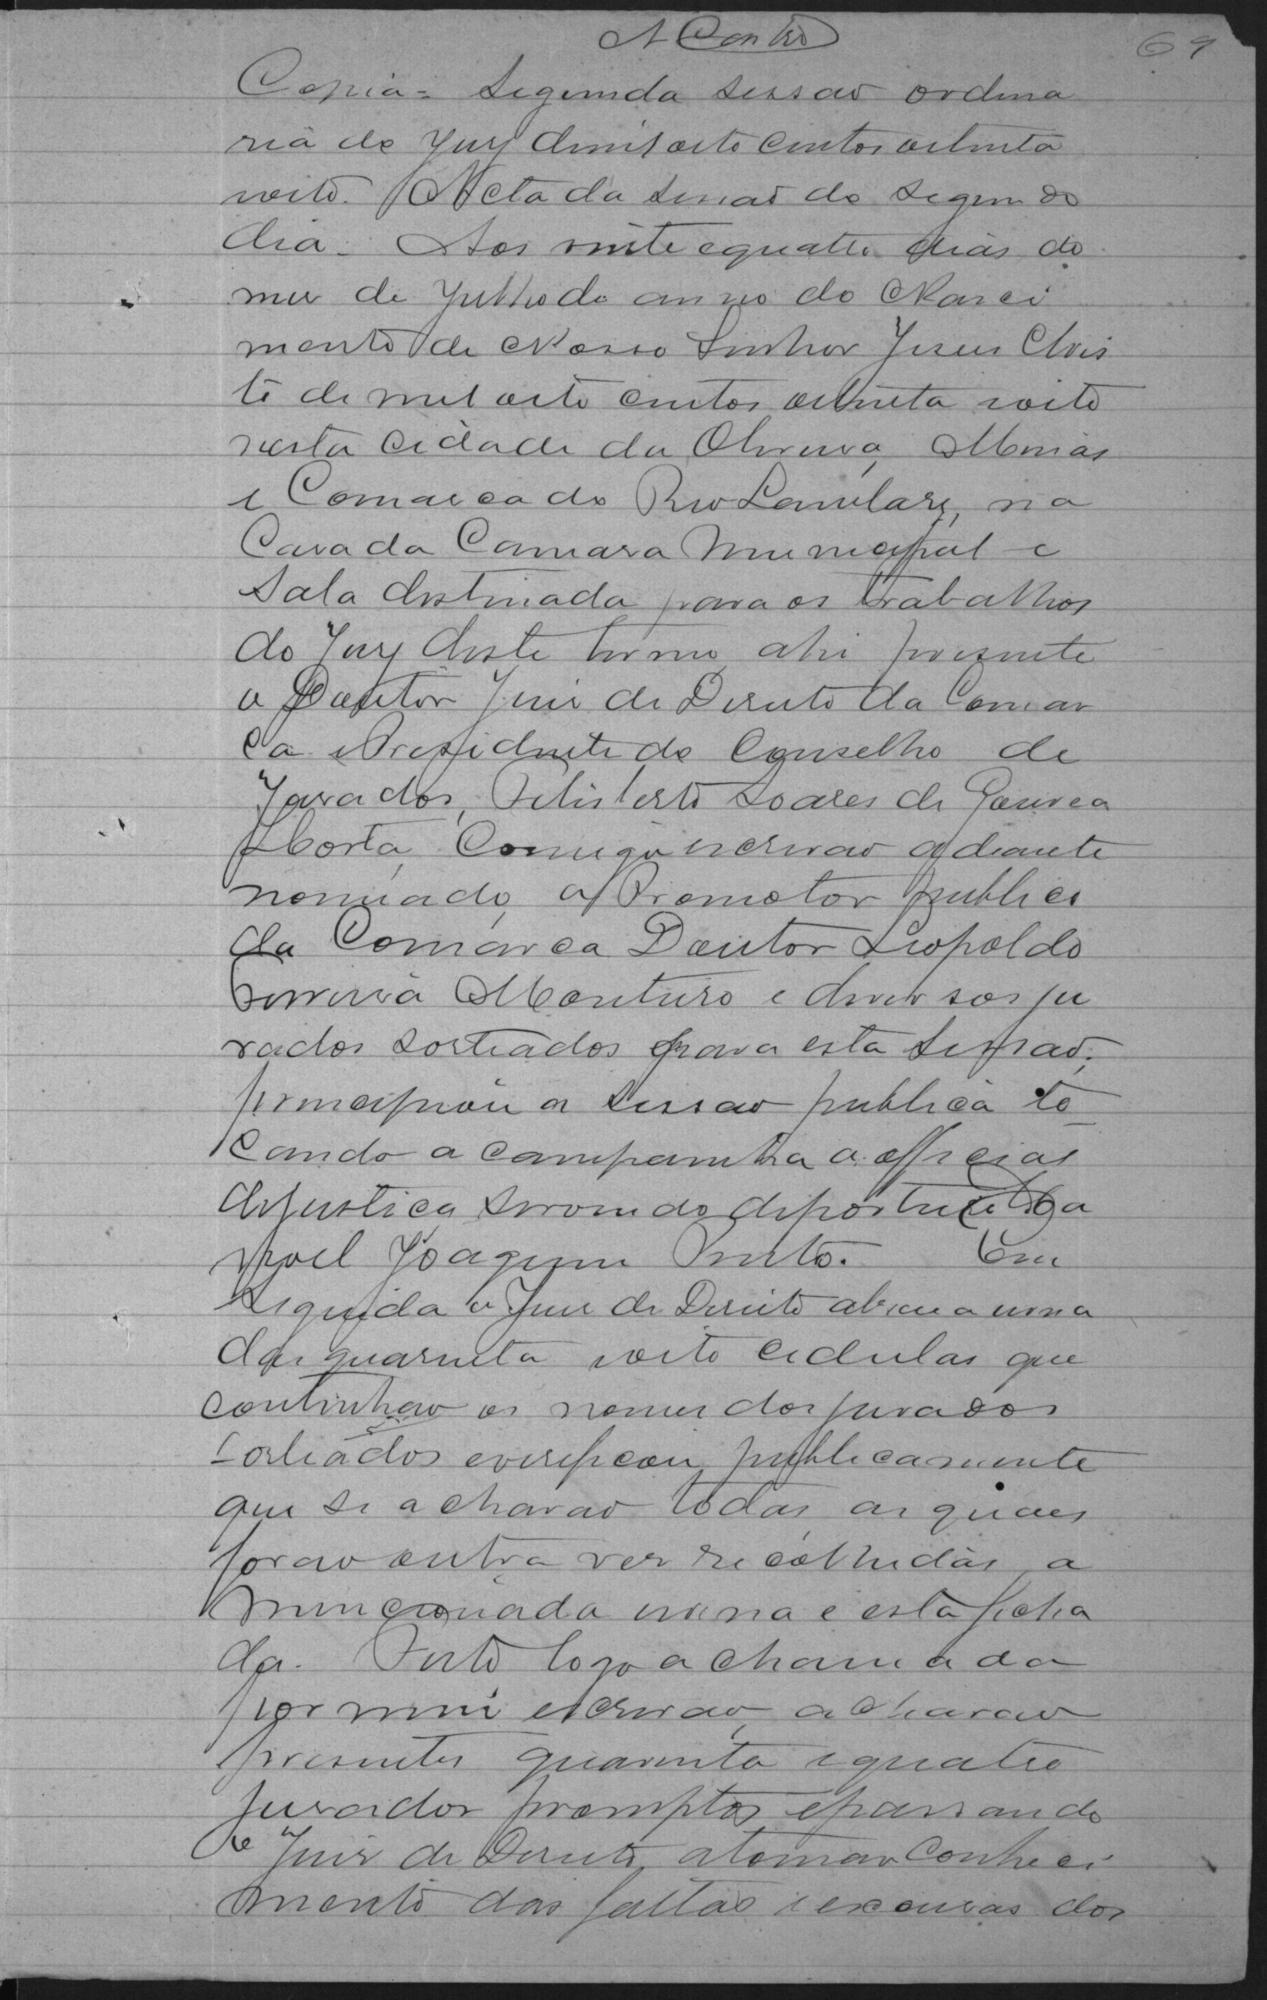 A Castro
69
Copia = Segunda sessão ordina
ria do Jury de mil oito centos oitenta
e oito. Acta da sessão do segundo
dia. Aos vinte e quatro dias do
mez de Julho do anno do Nasci
mento de Nosso Senhor Jesus Chris
to de mil oito centos oitenta e oito
nesta cidade da Oliveira, Minas
e Comarca do Rio Lambary, na
Casa da Camara Municipal e
Sala destinada para os trabalhos
do Jury deste termo, ahi presente
o Doutor Juiz de Direito da Comar
ca e Presidente do Conselho de
Jurados, Felisberto Soares de Gouvea
Horta, Comigo escrivão adiante
nomeado, o Promotor publico
da Comarca Doutor Leopoldo
Ferreira Monteiro e diversos ju
rados sorteados para esta sessão;
principiou a sessão publica to
cando a campainha o official
de justiça servindo de porteiro
Joaquim Pinto. Em
seguida o Juiz de Direito abrio a urna
das quarenta e oito cedulas que
continhão os nomes dos jurados
sorteados e verificou publicamente
que se achavão todas, as quaes
forão outra vez recolhidas a
mencionada urna e esta fecha
da. Feita logo a chamada
por mim escrivão, acharão
presentes quarenta e quatro
jurados promptos e passando
o Juiz de Direito a tomar conheci
mento das faltas e excusas dos